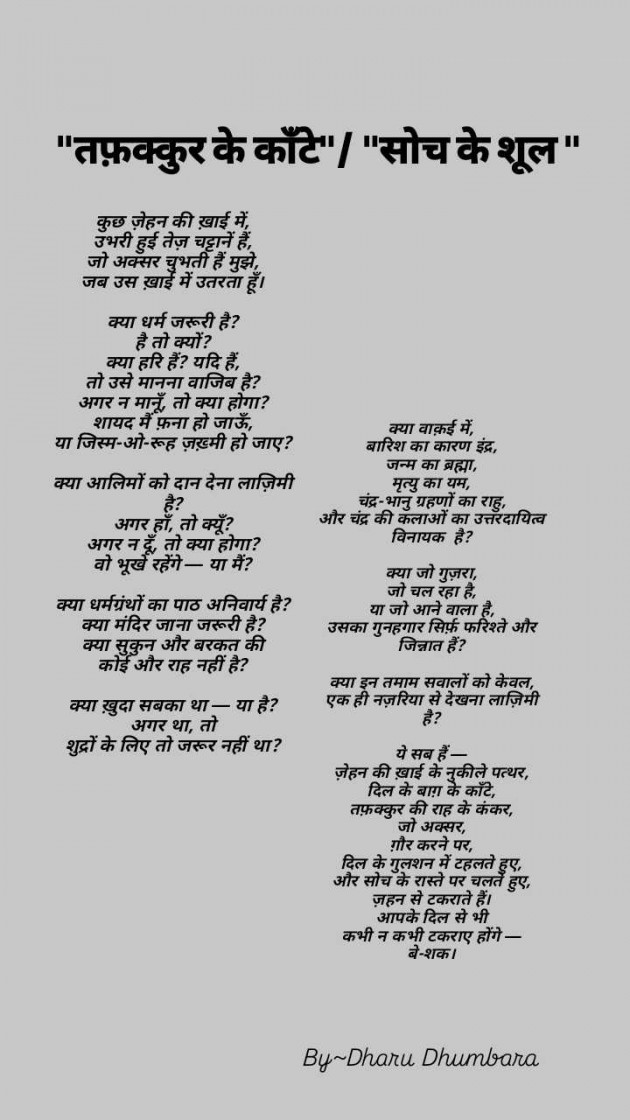 "तफ़क्कुर के काँटे"/ "सोच के शूल "
कुछ ज़ेहन की ख़ाई में,
उभरी हुई तेज़ चट्टानें हैं,
जो अक्सर चुभती हैं मुझे,
जब उस ख़ाई में उतरता हूँ।
क्या धर्म जरूरी है?
है तो क्यों?
क्या हरि हैं? यदि हैं,
तो उसे मानना वाजिब है?
अगर न मानूँ, तो क्या होगा?
शायद मैं फ़ना हो जाऊँ,
या जिस्म-ओ-रूह ज़ख़्मी हो जाए?
क्या आलिमों को दान देना लाज़िमी
है?
अगर हाँ, तो क्यूँ?
अगर न दूँ, तो क्या होगा?
वो भूखे रहेंगे — या मैं?
क्या धर्मग्रंथों का पाठ अनिवार्य है?
क्या मंदिर जाना जरूरी है?
क्या सुकुन और बरकत की
कोई और राह नहीं है?
क्या ख़ुदा सबका था — या है?
अगर था, तो
शुद्रों के लिए तो जरूर नहीं था?
क्या वाक़ई में,
बारिश का कारण इंद्र,
जन्म का ब्रह्मा,
मृत्यु का यम,
चंद्र-भानु ग्रहणों का राहु,
और चंद्र की कलाओं का उत्तरदायित्व
विनायक है?
क्या जो गुज़रा,
जो चल रहा है,
या जो आने वाला है,
उसका गुनहगार सिर्फ़ फरिश्ते और
जिन्नात हैं?
क्या इन तमाम सवालों को केवल,
एक ही नज़रिया से देखना लाज़िमी
है?
ये सब हैं —
ज़ेहन की ख़ाई के नुकीले पत्थर,
दिल के बाग़ के काँटे,
तफ़क्कुर की राह के कंकर,
जो अक्सर,
ग़ौर करने पर,
दिल के गुलशन में टहलते हुए,
और सोच के रास्ते पर चलते हुए,
ज़हन से टकराते हैं।
आपके दिल से भी
कभी न कभी टकराए होंगे —
बे-शक।
By~Dharu Dhumbara